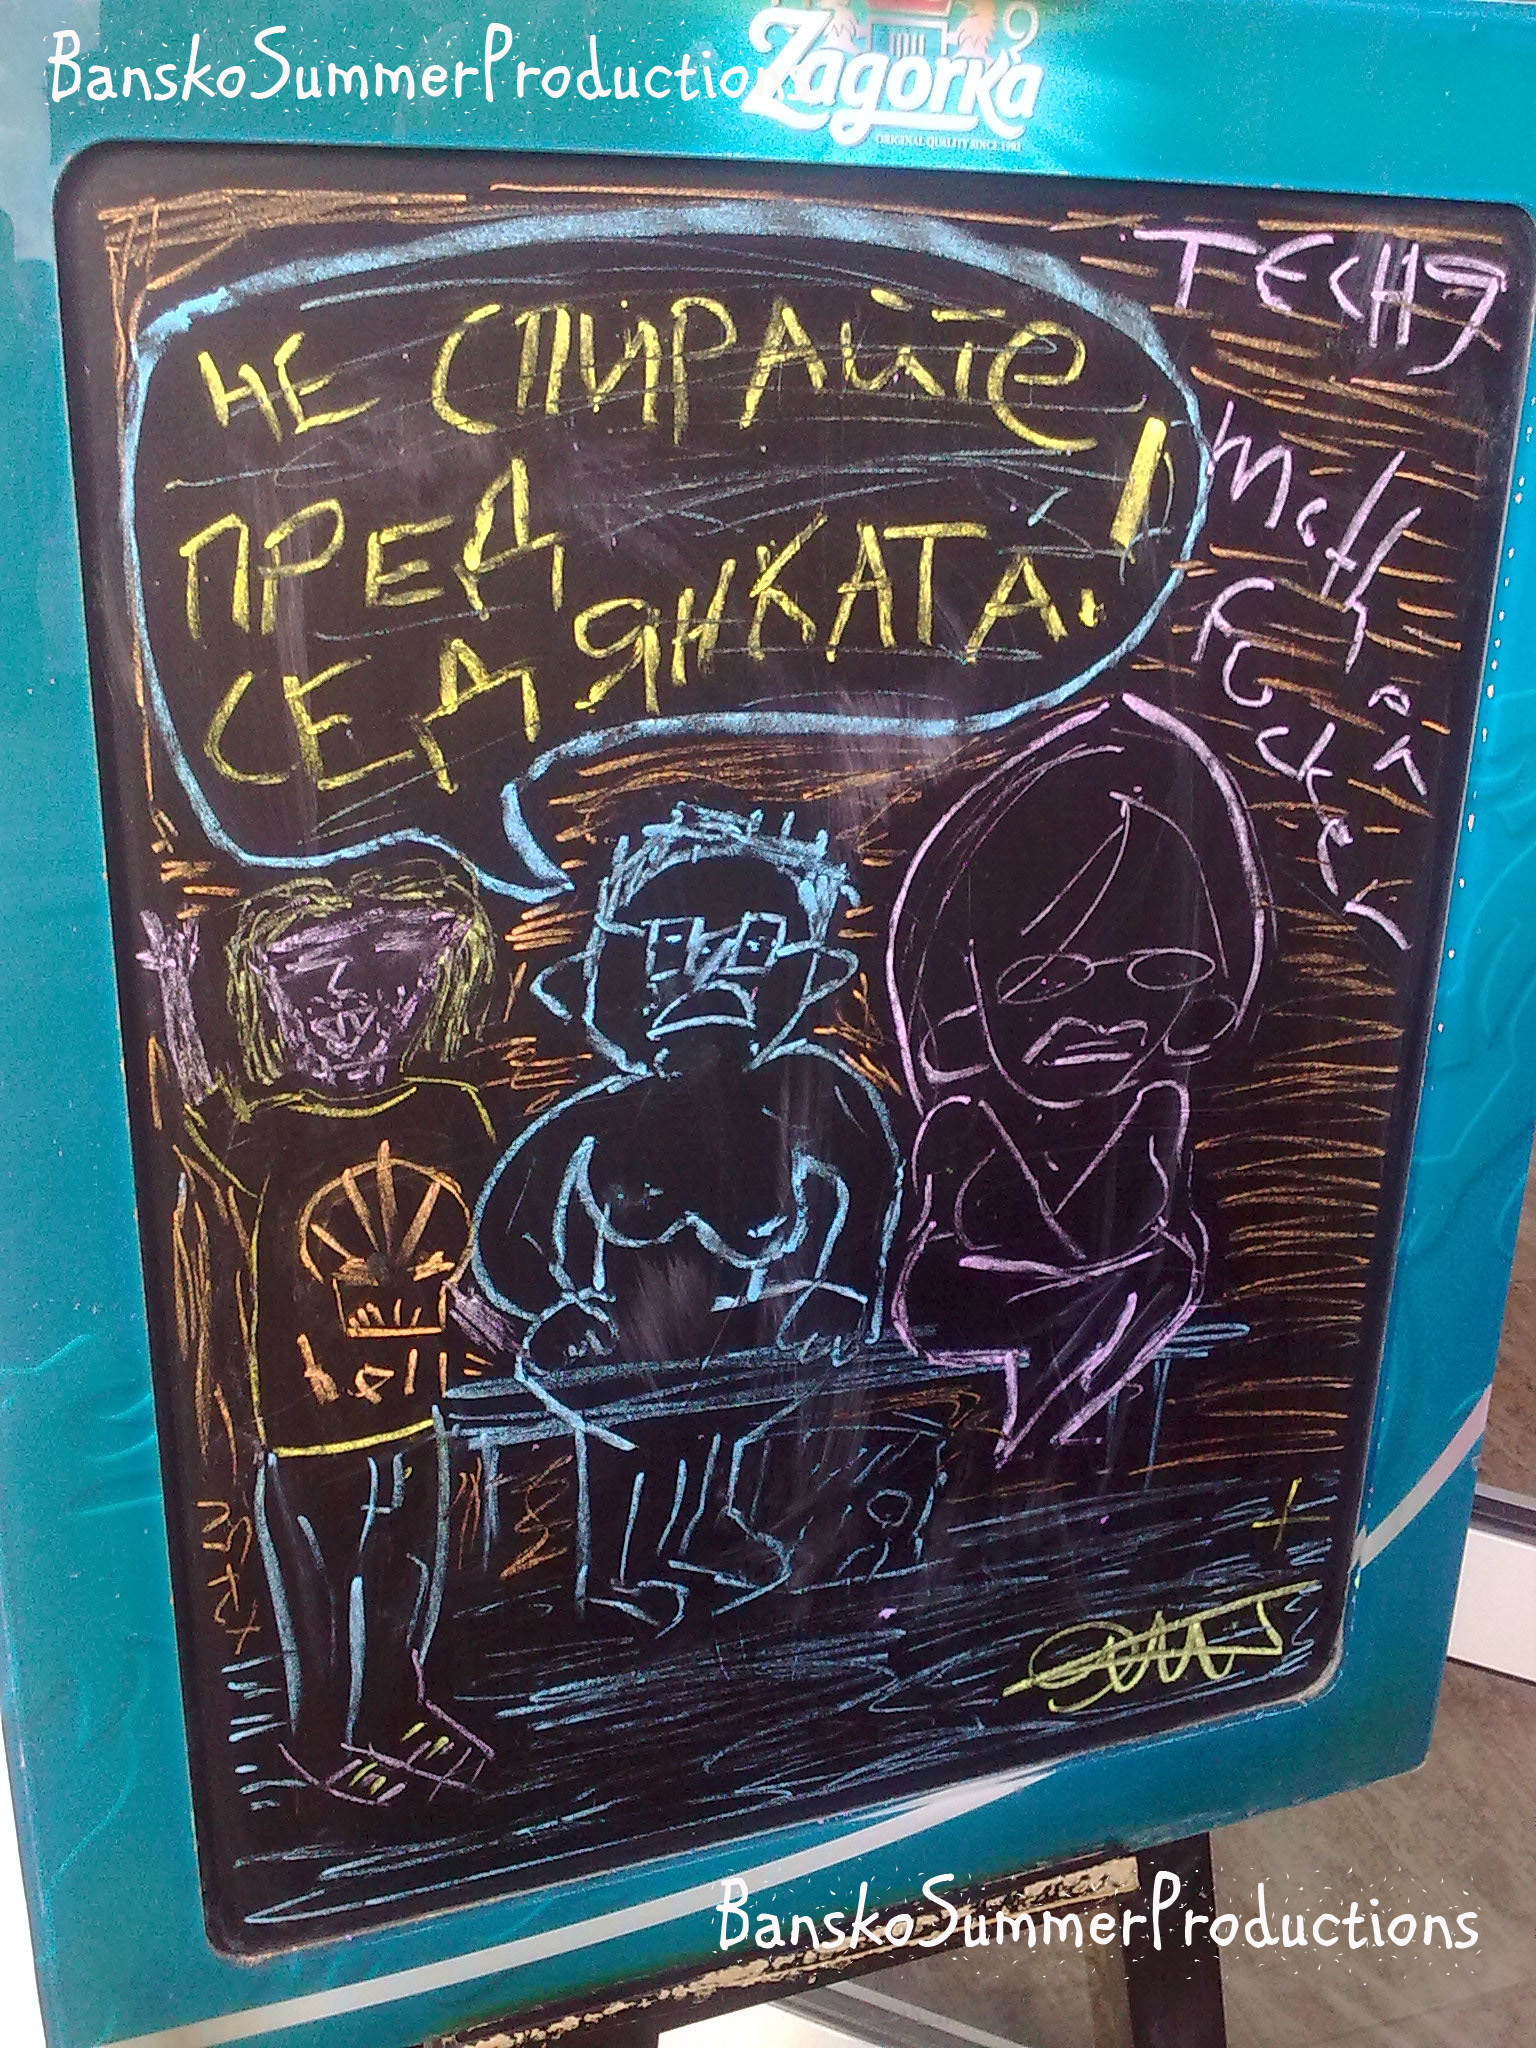 BanskoSummerProductions
Zagorka
ORIGINAL QUALITY SINCE 1902
ТЕСНЯ
НЕ СПИРАйТе
ПРЕД
СЕДЯНКАТА!
Moth
Fucker
hell
BanskoSummerProductions